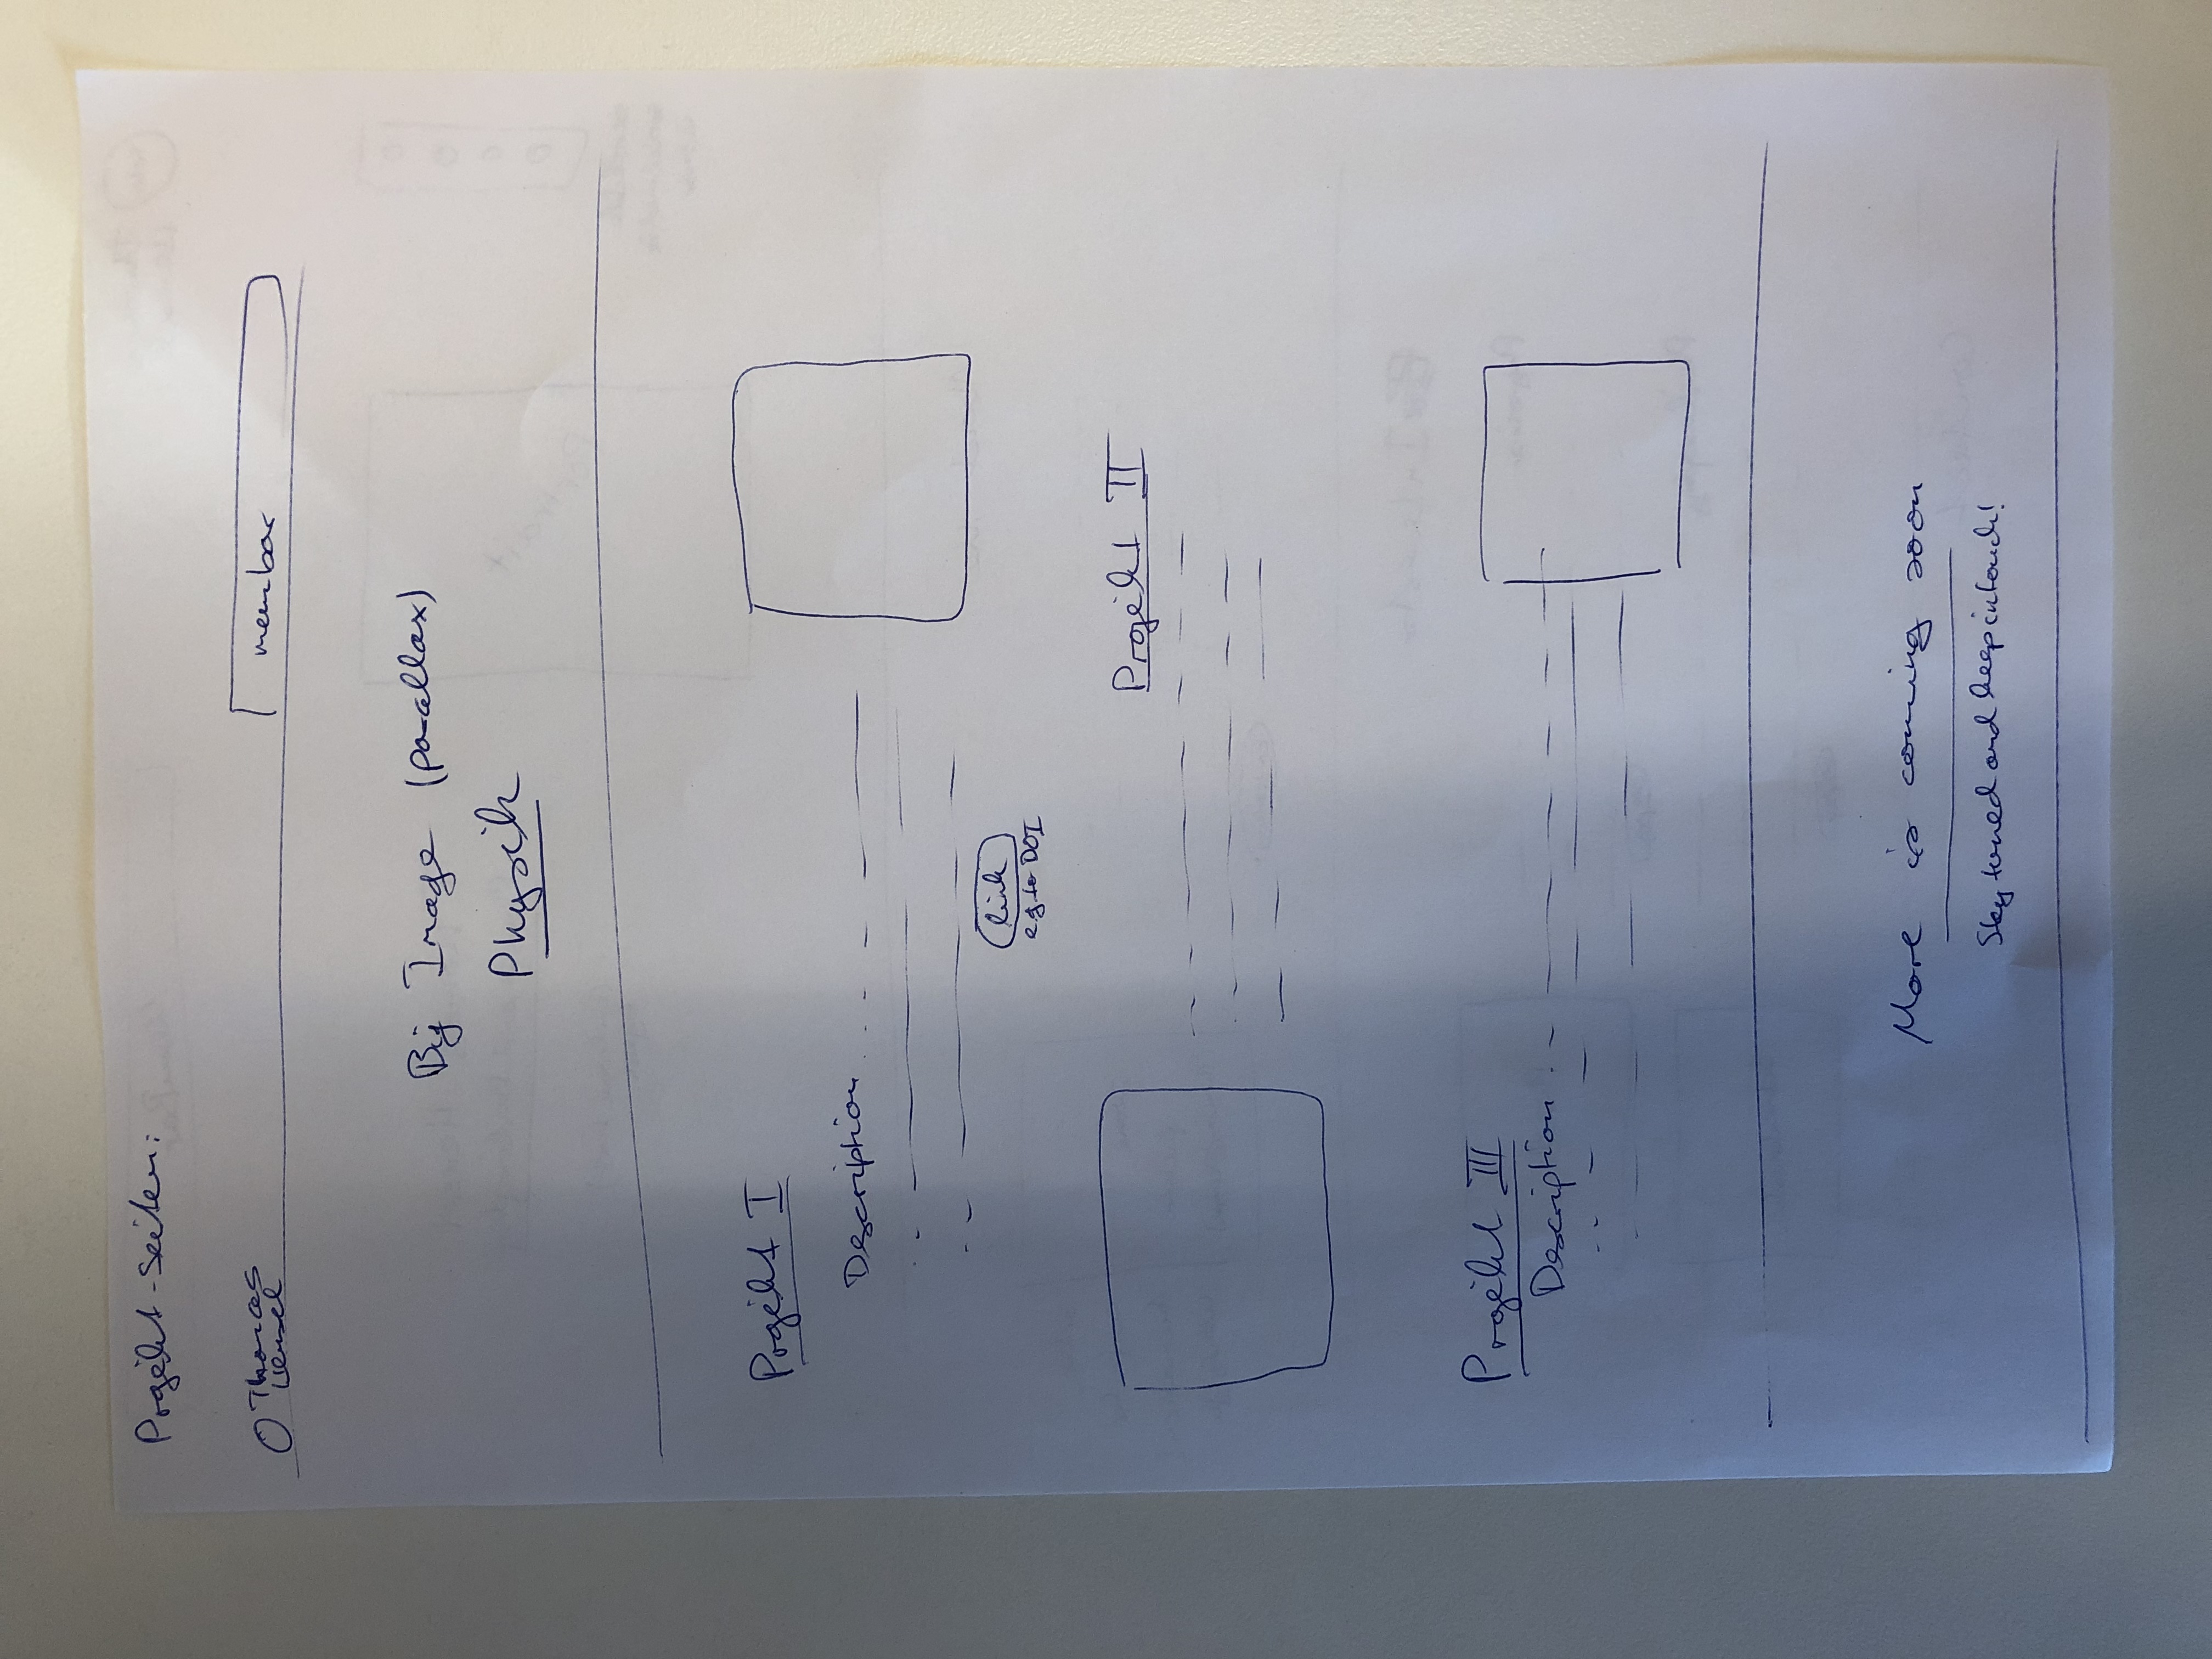 Projekt-Seiten:
Thomas
Hensel
menubar
Big Image (parallax)
Physik
Projekt I
Description
link
e.g. to DOI
Projekt II
Projekt III
Description
More is coming soon
Stay tuned and keep in touch!